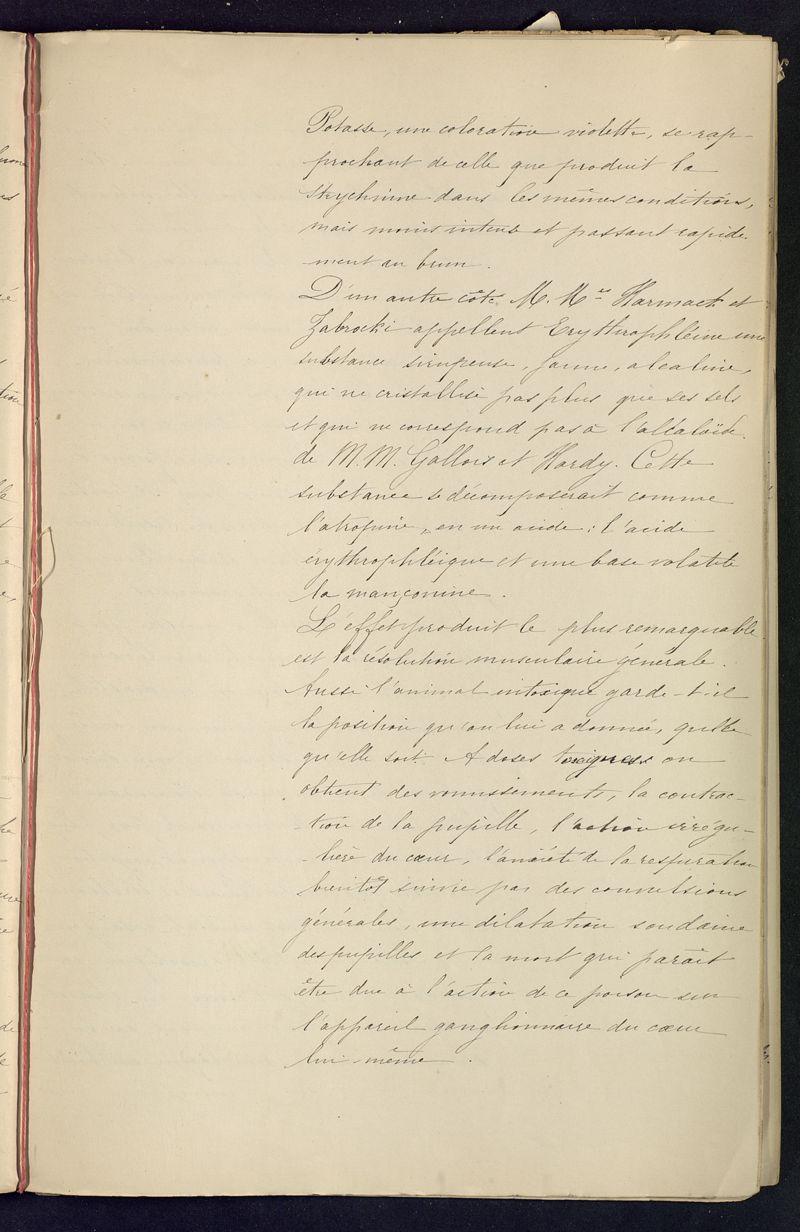 Potasse, une coloration violette, se rap-
prochant de celle que produit la
strychnine dans les mêmes conditions,
mais moins intense et passant rapide-
ment au brun.
D'un autre côté M. Mrs Harmack et
Zabrocki appellent Erythrophléine une
substance sirupeuse, jaune, alcaline,
qui ne cristallise pas plus que ses sels
et qui ne correspond pas à l'alcaloïde
de M.M. Gallois et Hardy. Cette
substance se décomposerait comme
l'atropine, en un acide : l'acide
érythrophléique et une base volatile
la mançonine.
L'effet produit le plus remarquable
est la résolution musculaire générale.
Aussi l'animal intoxiqué garde-t-il
la position qu'on lui a donnée, quelle
qu'elle soit. A doses toxiques on
obtient des vomissements, la contrac-
tion de la pupille, l'action irrégu-
lière du cœur, l'anxiété de la respiration
bientôt suivie par des convulsions
générales, une dilatation soudaine
des pupilles et la mort qui paraît
être due à l'action de ce poison sur
l'appareil ganglionnaire du cœur
lui-même.